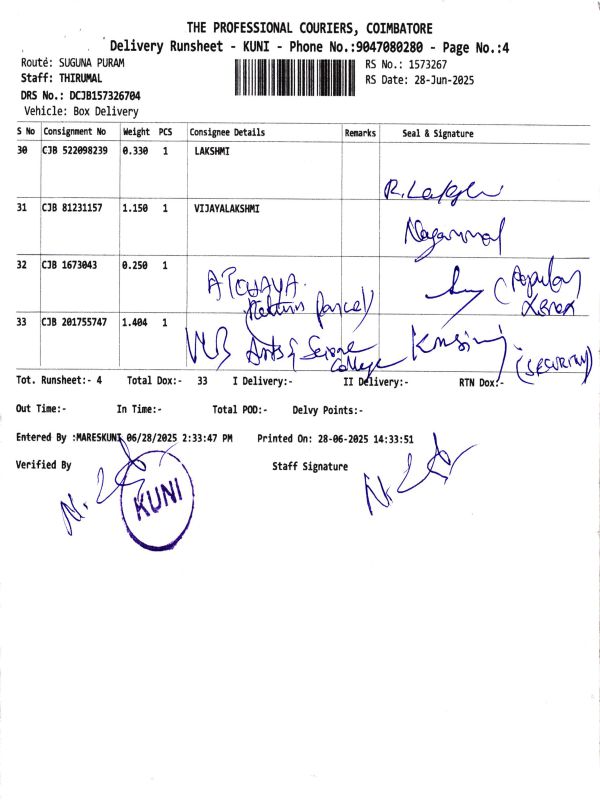 THE PROFESSIONAL COURIERS, COIMBATORE
Delivery Runsheet - KUNI - Phone No.:9047080280 - Page No.:4
Route: SUGUNA PURAM
RS No.: 1573267
Staff: THIRUMAL
RS Date: 28-Jun-2025
DRS No.: DCJB157326704
Vehicle: Box Delivery
S No Consignment No Weight PCS Consignee Details Remarks Seal & Signature
30 CJB 522098239 0.330 1 LAKSHMI
R. Lakshmi
31 CJB 81231157 1.150 1 VIJAYALAKSHMI
Nagammal
32 CJB 1673043 0.250 1 ATCHAYA
(Return parcel) (Popular
Xerox
33 CJB 201755747 1.404 1
Arts & Science
College
(SECURITY)
Tot. Runsheet:- 4 Total Dox:- 33 I Delivery:- II Delivery:- RTN Dox:-
Out Time:- In Time:- Total POD:- Delvy Points:-
Entered By :MARESKUNI 06/28/2025 2:33:47 PM Printed On: 28-06-2025 14:33:51
Verified By Staff Signature
KUNI